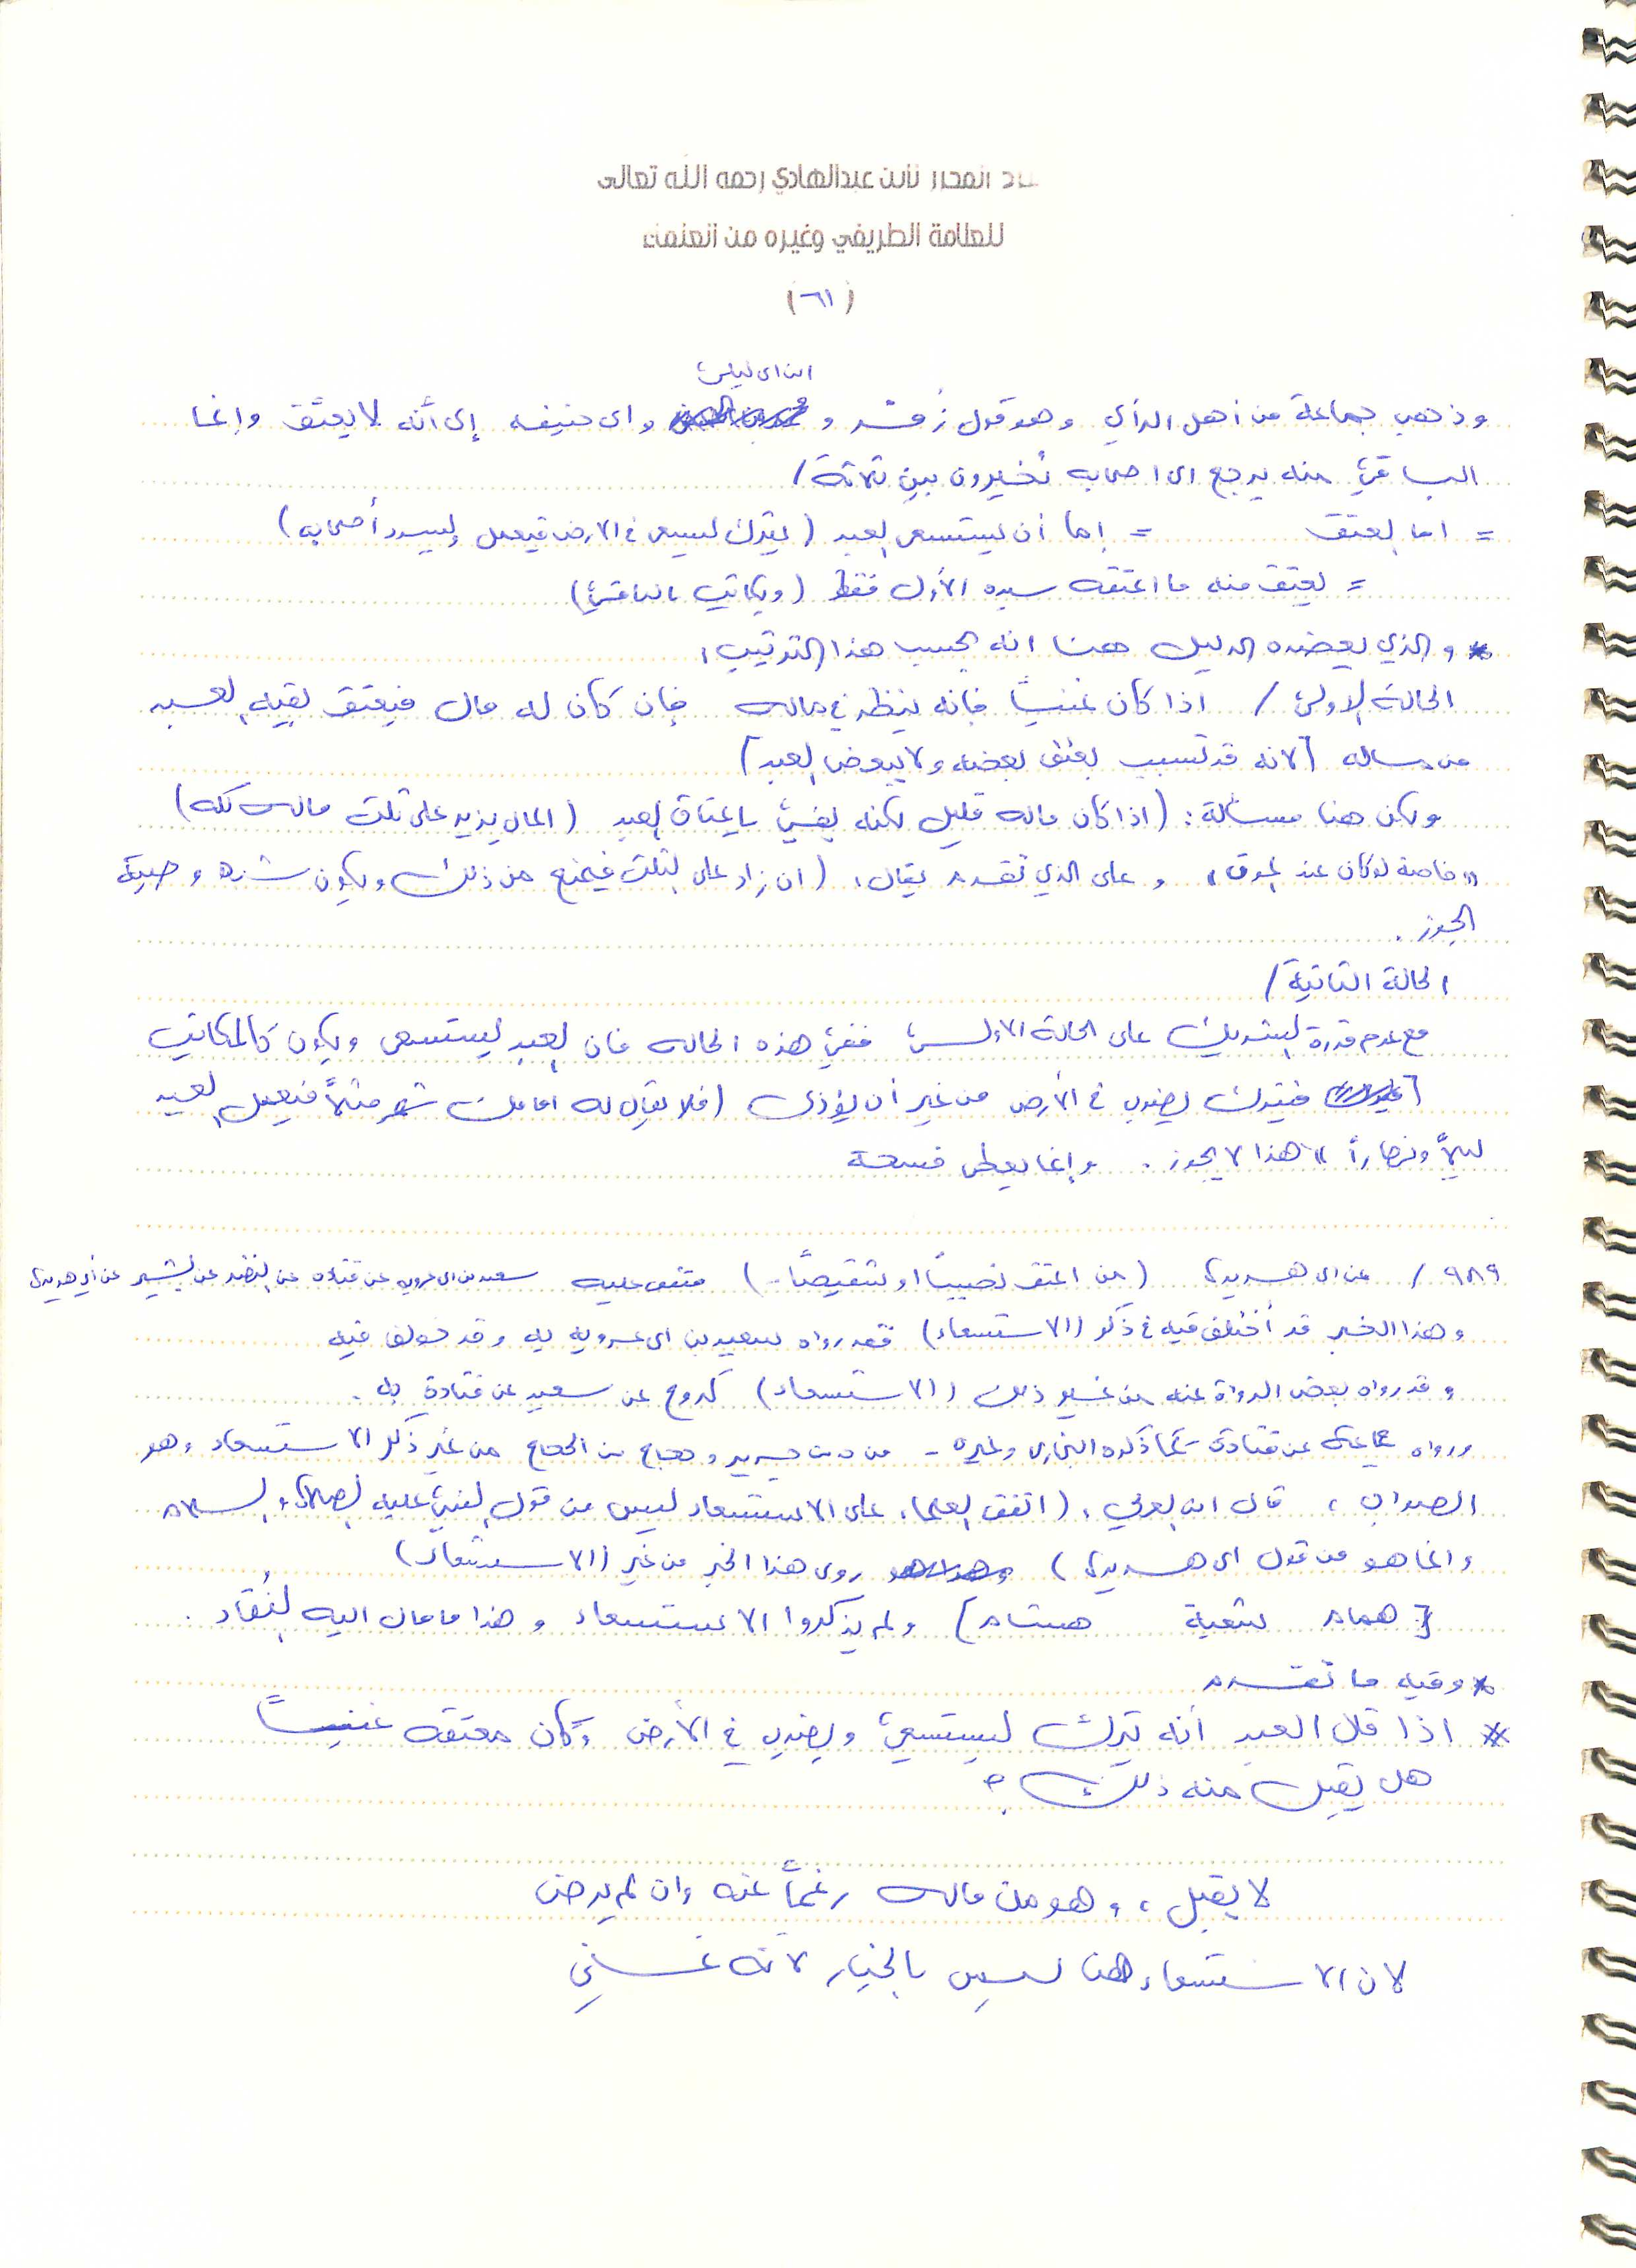 المحرر لابن عبدالهادي رحمه الله تعالى
للعلامة الطريفي وغيره من العلماء
(٦١)
ابن ابي ليلى
وذهب جماعة من أهل الرأي وهو قول زُفر و وابي حنيفه إلى أنه لا يعتق وإنما
الباقي منه يرجع الى اصحابه يُخيرون بين ثلاثة /
= اما العتق = إما أن يستسعى العبد (يترك ليسعى في الارض فيعمل ليسدد أصحابه)
= يعتق منه ما اعتقه سيده الأول فقط (ويكاتب بالباقي)
* والذي يعضده الدليل هنا انه بحسب هذا الترتيب:
الحالة الاولى / اذا كان غنياً فإنه ينظر في ماله فإن كان له مال فيعتق بقيه العبد
من ماله [لانه قد تسبب بعتق بعضه ولا يبعض العبد]
ولكن هنا مسألة: (اذا كان ماله قليل لكنه يفي بإعتاق العبد (المال يزيد على ثلث ماله كله)
"خاصة لو كان عند الموت" وعلى الذي تقدم يقال: (ان زاد على الثلث فيمنع من ذلك ويكون شبه وصية
الحالة الثانية /
مع عدم قدرة الشريك على الحالة الاولى ففي هذه الحاله فان العبد يستسعى ويكون كالمكاتب
فيترك يضرب في الأرض من غير أن يؤذى (فلا يقال له امامك شهر مثلاً فيعمل العبد
ليلاً ونهاراً" هذا لا يجوز. وإنما يعطى فسحة
٩٨٩ / عن ابي هريرة (من اعتق نصيباً او شقيصاً..) متفق عليه سعيد بن ابي عروبه عن قتاده عن النضر عن بشير عن أبي هريرة
وهذا الخبر قد أختلف فيه في ذكر (الاستسعاء) فقد رواه سعيد بن ابي عروبه به وقد خولف فيه
وقد رواه بعض الرواة عنه من غير ذلك (الاستسعاء) كروح عن سعيد عن قتادة به.
ورواه جماعة عن قتادة كما ذكره البخاري وغيره - جرير وحجاج بن الحجاج من غير ذكر الاستسعاء وهو
الصواب، قال ابن العربي: (اتفق العلماء على الاستسعاء ليس من قول النبي عليه الصلاة والسلام
وانما هو من قول ابي هريرة) روى هذا الخبر من غير (الاستسعاء)
[همام شعبة هشام] ولم يذكروا الاستسعاء وهذا ما مال اليه النُقاد.
* وفيه ما تقدم
* اذا قال العبد أنه يترك ليستسعي ويضرب في الأرض وكان معتقه غنياً
هل يقبل منه ذلك؟
لا يقبل، وهو من ماله رغماً عنه وان لم يرض
لان الاستسعاء هنا ليس بالخيار لانه غني